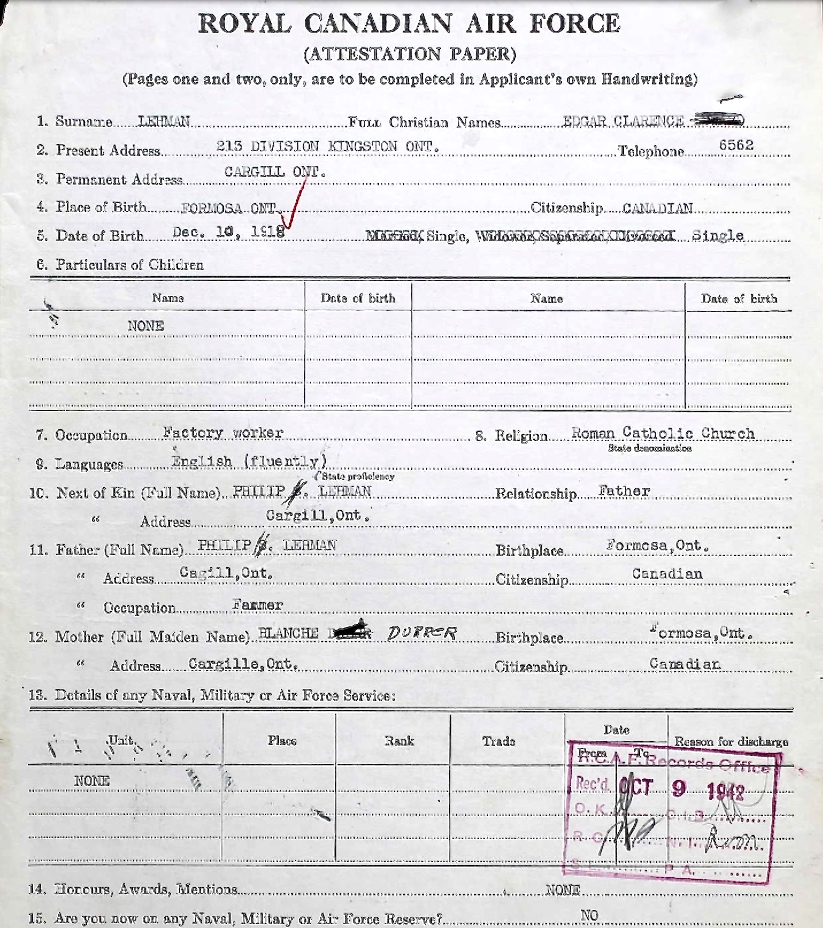 ROYAL CANADIAN AIR FORCE
(ATTESTATION PAPER)
(Pages one and two, only, are to be completed in Applicant's own Handwriting)
1. Surname LEHMAN Full Christian Names EDGAR CLARENCE
2. Present Address 213 DIVISION KINGSTON ONT. Telephone 6562
3. Permanent Address CARGILL ONT.
4. Place of Birth FORMOSA ONT. Citizenship CANADIAN
5. Date of Birth Dec. 10, 1918 Single, Widower, Separated, Divorced Single
6. Particulars of Children
Name Date of birth Name Date of birth
NONE
7. Occupation Factory worker 8. Religion Roman Catholic Church
State denomination
9. Languages English (fluently)
State proficiency
10. Next of Kin (Full Name) PHILIP LEHMAN Relationship Father
" Address Cargill,Ont.
11. Father (Full Name) PHILIP LEHMAN Birthplace Formosa,Ont.
" Address Cagill,Ont. Citizenship Canadian
" Occupation Farmer
12. Mother (Full Maiden Name) BLANCHE DURRER Birthplace Formosa,Ont.
" Address Cargille,Ont. Citizenship Canadian
13. Details of any Naval, Military or Air Force Service:
Unit Place Rank Trade Date Reason for discharge
From To
NONE
R.C.A.F. Records Office
Rec'd. OCT 9 1942
O.K.
R.O.
P.A.
14. Honours, Awards, Mentions NONE
15. Are you now on any Naval, Military or Air Force Reserve? NO